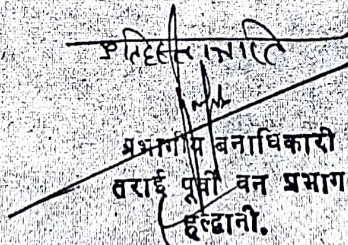 प्रतिहस्ताक्षरित
प्रभागीय बनाधिकारी
तराई पूर्वी वन प्रभाग
हल्द्वानी.